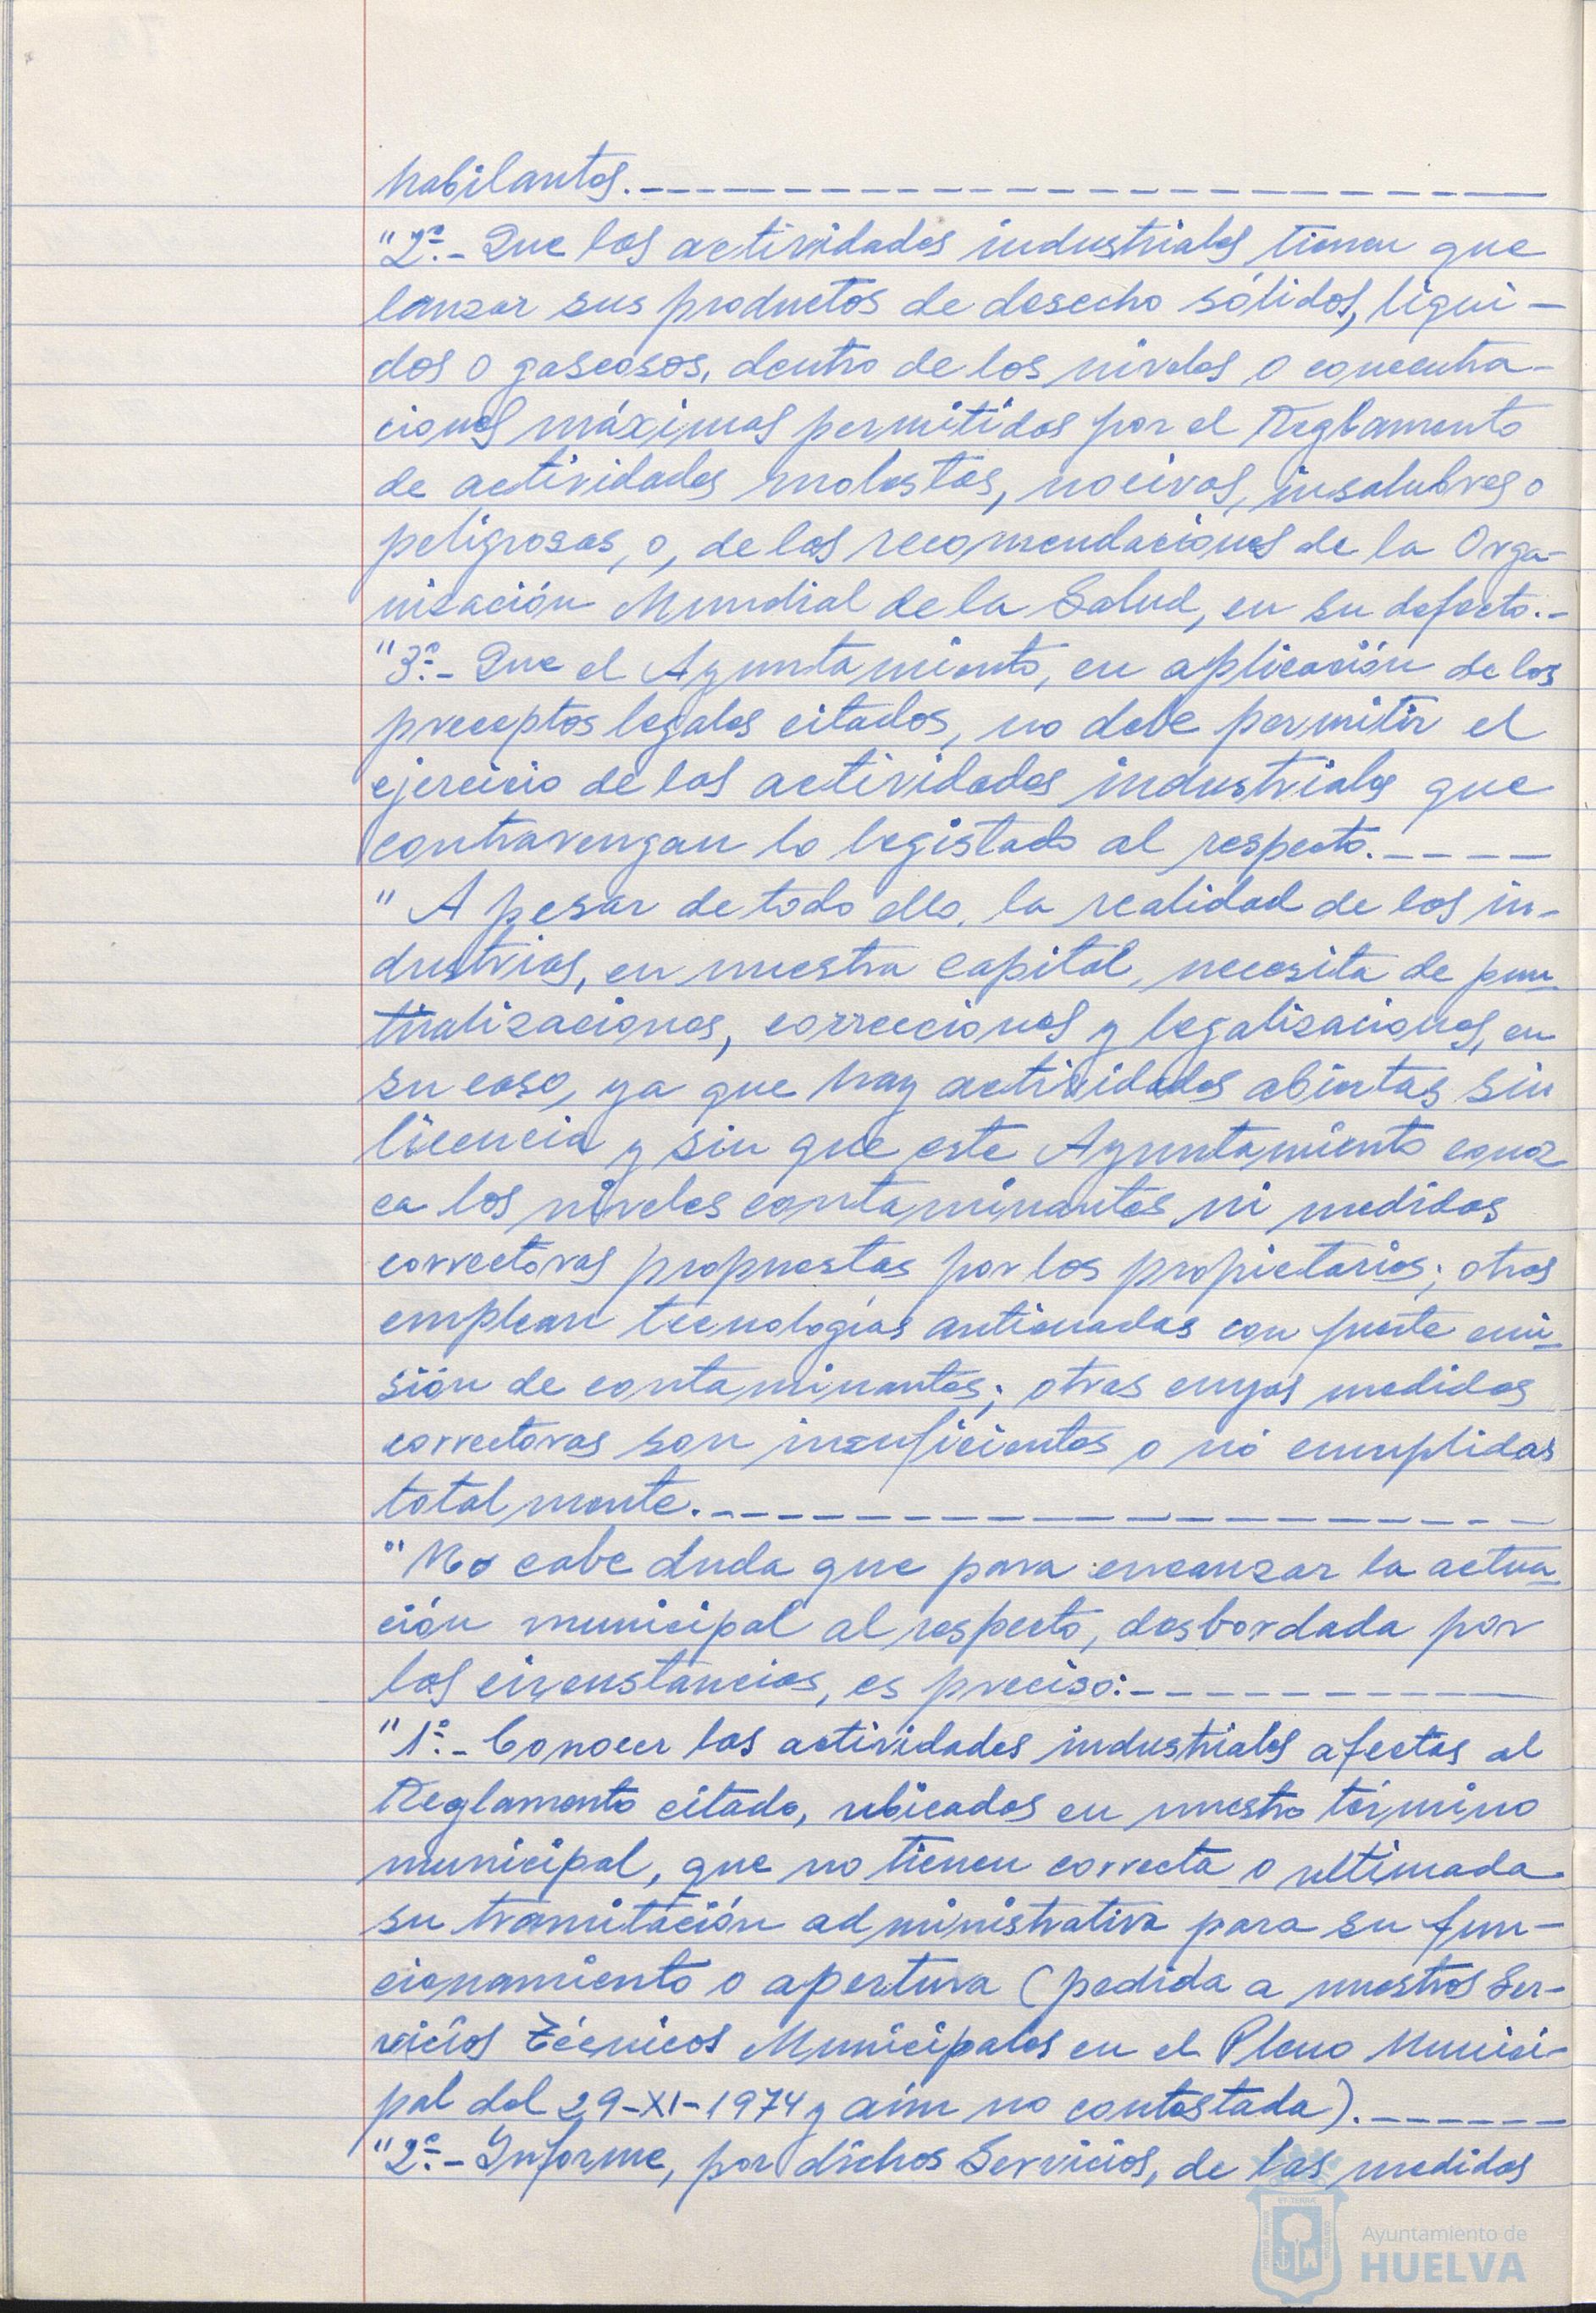 habitantes.
"2º.- Que las actividades industriales tienen que
lanzar sus productos de desecho sólidos, líqui-
dos o gaseosos, dentro de los niveles o concentra-
ciones máximas permitidas por el Reglamento
de actividades molestas, nocivas, insalubres o
peligrosas, o, de las recomendaciones de la Orga-
nización Mundial de la Salud, en su defecto.-
"3º.- Que el Ayuntamiento, en aplicación de los
preceptos legales citados, no debe permitir el
ejercicio de las actividades industriales que
contravengan lo legislado al respecto.
"A pesar de todo ello, la realidad de las in-
dustrias, en nuestra capital, necesita de pun-
tualizaciones, correcciones y legalizaciones, en
su caso, ya que hay actividades abiertas sin
licencia y sin que este Ayuntamiento conoz-
ca los niveles contaminantes ni medidas
correctoras propuestas por los propietarios; otras
emplean tecnologías anticuadas con fuerte emi-
sión de contaminantes; otras cuyas medidas
correctoras son insuficientes o no cumplidas
totalmente.
"No cabe duda que para encauzar la actua-
ción municipal al respecto, desbordada por
las circunstancias, es preciso:
"1º.- Conocer las actividades industriales afectas al
Reglamento citado, ubicadas en nuestro término
municipal, que no tienen correcta o ultimada
su tramitación administrativa para su fun-
cionamiento o apertura (pedida a nuestros Ser-
vicios Técnicos Municipales en el Pleno Munici-
pal del 29-XI-1974 y aún no contestada).
"2º.- Informe, por dichos Servicios, de las medidas
Ayuntamiento de
HUELVA